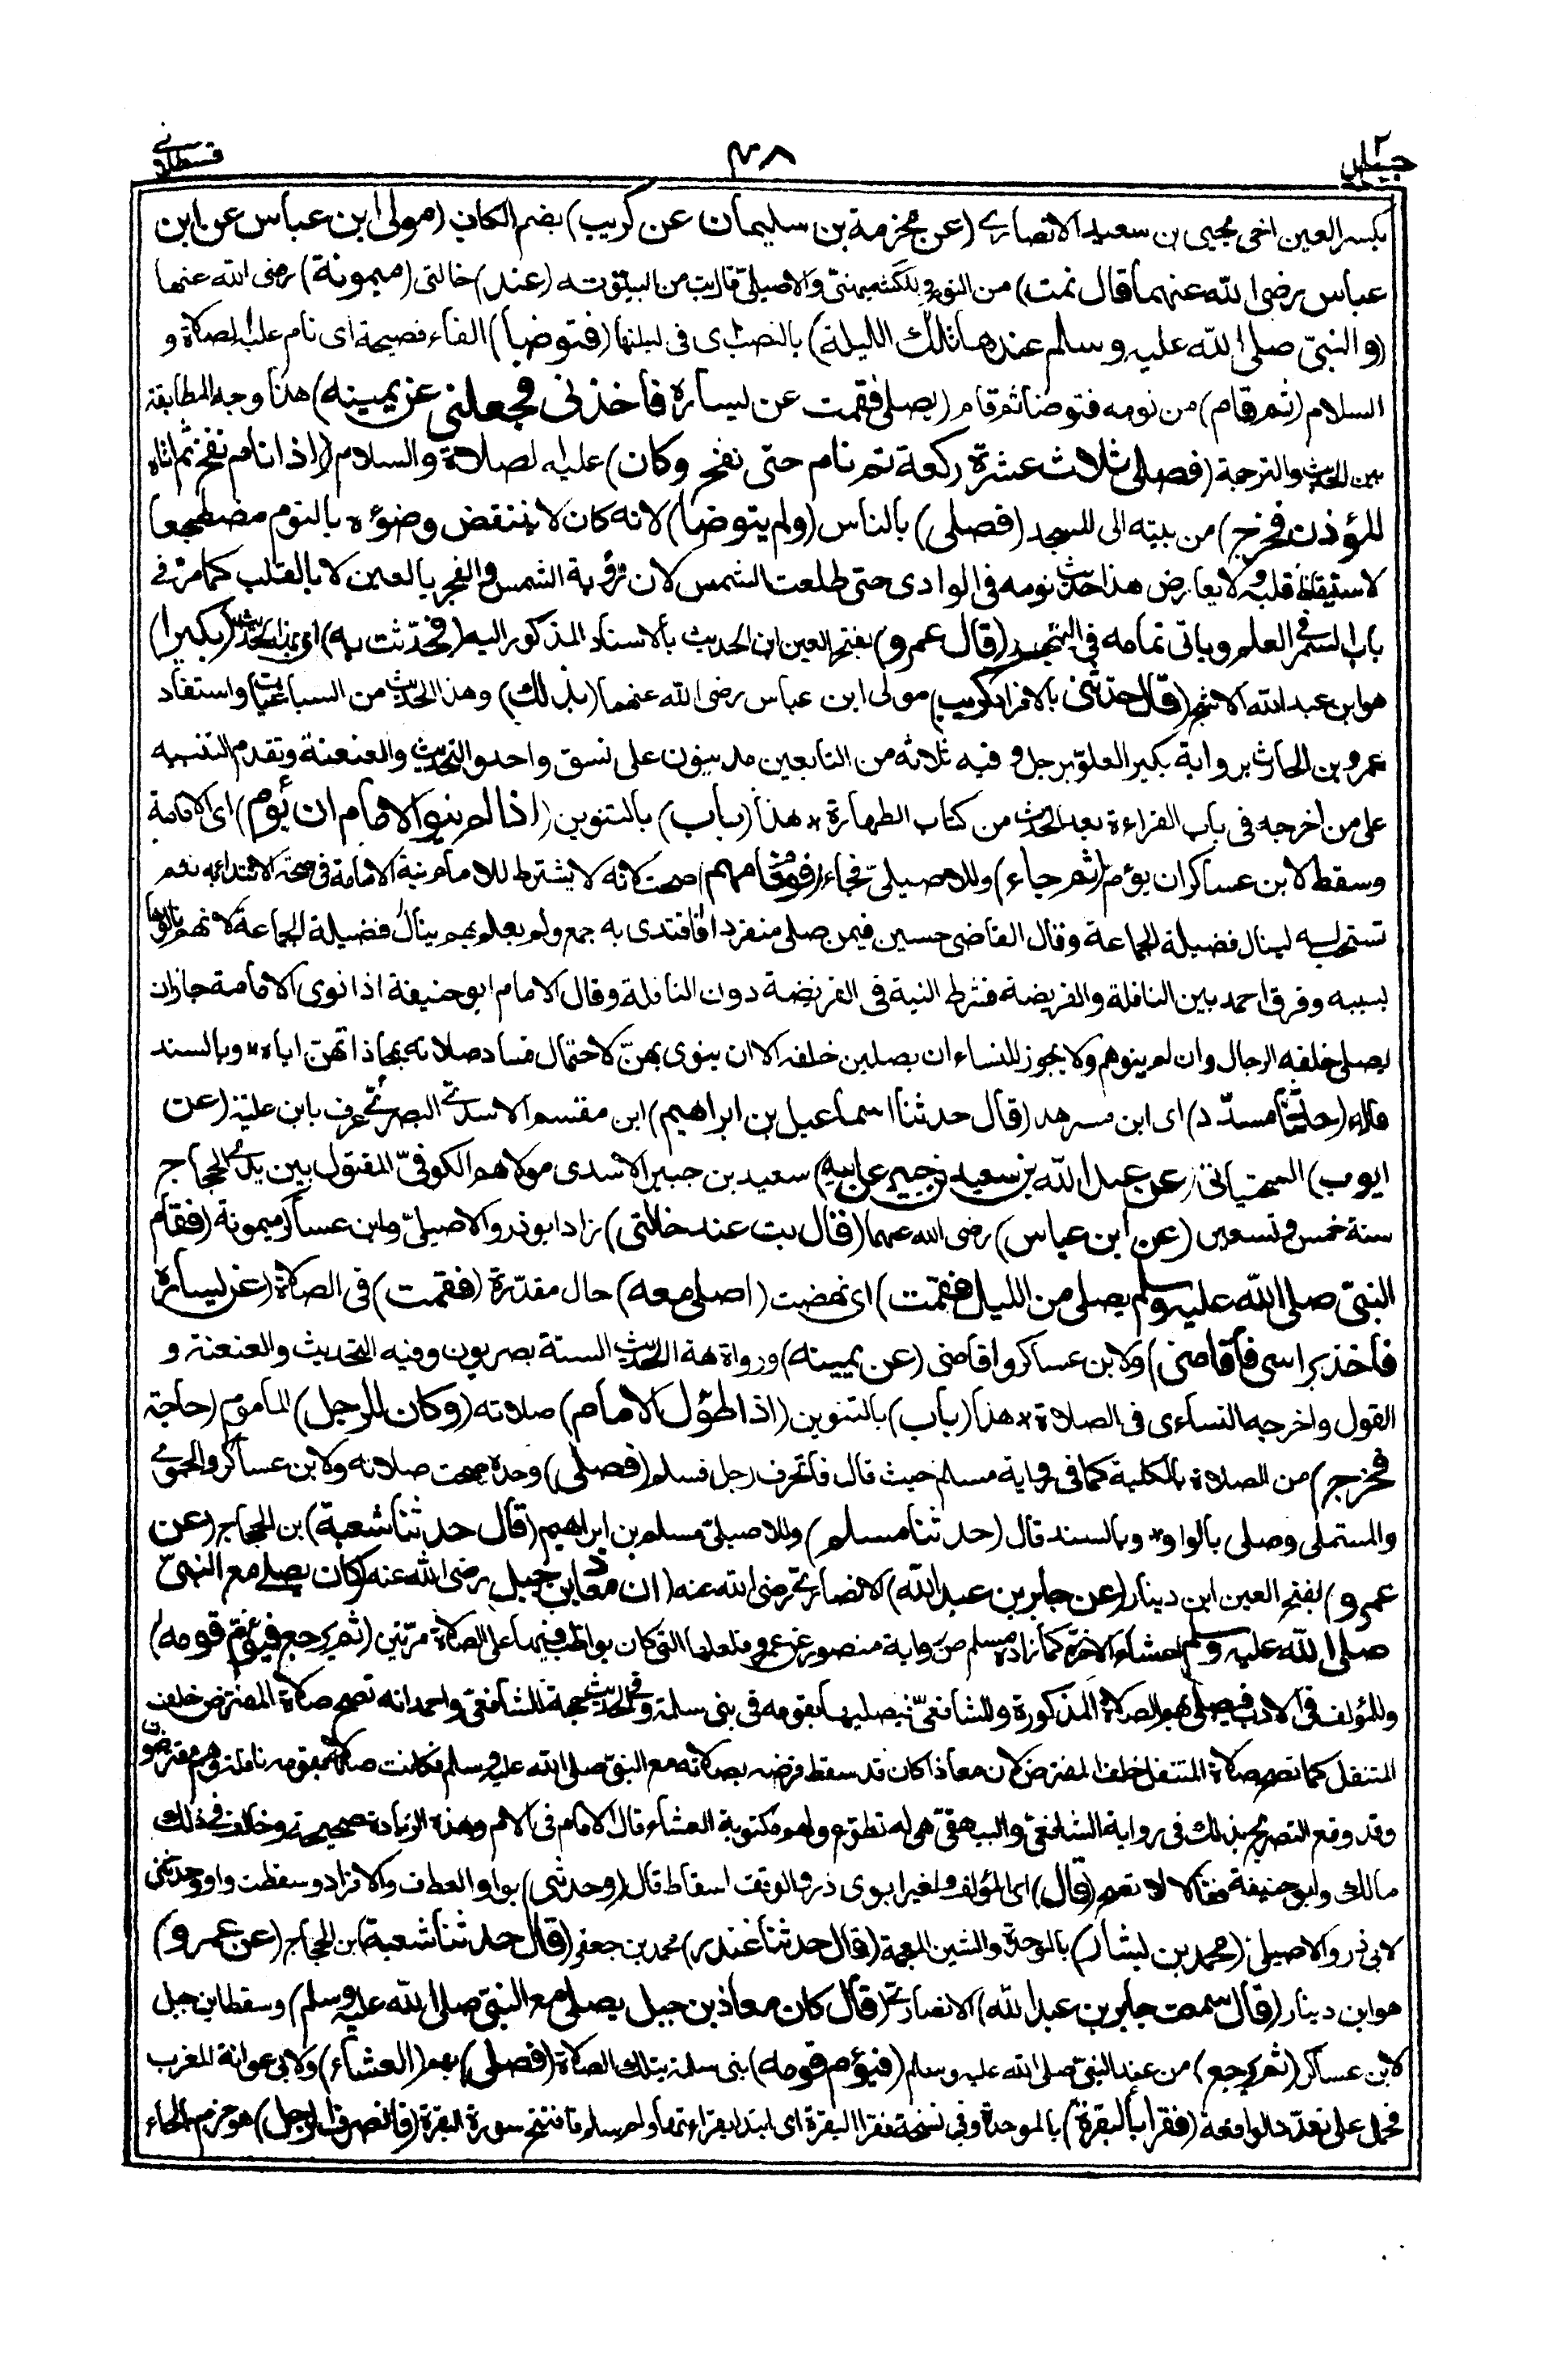 جلد ٢
٤٨
قسطلانى
بكسر العين اخى يحيى بن سعيد الانصارى (عن مخرمة بن سليمان عن كريب) بضم الكاف (مولى ابن عباس عن ابن
عباس رضى الله عنهما قال نمت) من النوم وللكشميهنى والاصيلى قال بت من البيتوتة (عند) خالتى (ميمونة) رضى الله عنها
(والنبىّ صلى الله عليه وسلم عندها تلك الليلة) بالنصب اى فى ليلتها (فتوضأ) الفاء فصيحة اى نام عليه الصلاة و
السلام (ثم قام) من نومه فتوضأ ثم قام (يصلى فقمت عن يساره فأخذنى فجعلنى عن يمينه) هذا وجه المطابقة
بين الحديث والترجمة (فصلى ثلاث عشرة ركعة ثم نام حتى نفخ وكان) عليه الصلاة والسلام (اذا نام نفخ ثم اتاه
المؤذن فخرج) من بيته الى المسجد (فصلى) بالناس (ولم يتوضأ) لانه كان لا ينتقض وضوءه بالنوم مضطجعا
لاستيقاظ قلبه ولا يعارض هذا حديث نومه فى الوادى حتى طلعت الشمس لان رؤية الشمس والفجر بالعين لا بالقلب كما مر فى
باب السمر فى العلم وياتى تمامه فى التهجد (قال عمرو) بفتح العين ابن الحديث بالاسناد المذكور اليه (فحدّثت به) اى بهذا الحديث (بكيرا)
هو ابن عبد الله الاشج (قال حدثنى) بالافراد (كريب) مولى ابن عباس رضى الله عنهما (بذلك) وهذا الحديث من السباعيات واستفاد
عمرو بن الحارث برواية بكير العلوّ برجل وفيه ثلاثة من التابعين مدنيون على نسق واحد والتحديث والعنعنة وتقدم التنبيه
على من اخرجه فى باب القراءة بعد الحدث من كتاب الطهارة * هذا (باب) بالتنوين (اذا لم ينو الامام ان يؤم) اى الامامة
وسقط لابن عساكر ان يؤم (ثم جاء) وللاصيلىّ فجاء (قوم فأمهم) صحت لانه لا يشترط للامام نية الامامة فى صحة الاقتداء به نعم
تستحب له لينال فضيلة الجماعة وقال القاضى حسين فيمن صلى منفردا فاقتدى به جمع ولم يعلم بهم ينال فضيلة الجماعة لانهم نالوها
بسببه وفرق احمد بين النافلة والفريضة فشرط النية فى الفريضة دون النافلة وقال الامام ابو حنيفة اذا نوى الامامة جاز ان
يصلى خلفه الرجال وان لم ينوهم ولا يجوز للنساء ان يصلين خلفه الا ان ينوى بهنّ لاحتمال فساد صلاته بمحاذاتهن اياه * وبالسند
قال (حدثنا مسدّد) اى ابن مسرهد (قال حدثنا اسماعيل بن ابراهيم) ابن مقسم الاسدى البصرى عرف بابن علية (عن
ايوب) السختيانى (عن عبد الله بن سعيد بن جبير عن ابيه) سعيد بن جبير الاسدى مولاهم الكوفىّ المقتول بين يدى الحجاج
سنة خمس وتسعين (عن ابن عباس) رضى الله عنهما (قال بت عند خالتى) زاد ابو ذر والاصيلىّ وابن عساكر ميمونة (فقام
النبىّ صلى الله عليه وسلم يصلى من الليل فقمت) اى نهضت (اصلى معه) حال مقدّرة (فقمت) فى الصلاة (عن يساره
فأخذ برأسى فأقامنى) ولابن عساكر واقامنى (عن يمينه) ورواة هذا الحديث الستة بصريون وفيه التحديث والعنعنة و
القول واخرجه النساءى فى الصلاة * هذا (باب) بالتنوين (اذا طوّل الامام) صلاته (وكان للرجل) المأموم (حاجة
فخرج) من الصلاة بالكلية كما فى رواية مسلم حيث قال فانحرف رجل فسلم (فصلى) وحده صحت صلاته ولابن عساكر والحموى
والمستملى وصلى بالواو * وبالسند قال (حدثنا مسلم) وللاصيلىّ مسلم بن ابراهيم (قال حدثنا شعبة) بن الحجاج (عن
عمرو) بفتح العين ابن دينار (عن جابر بن عبد الله) الانصارى رضى الله عنه (ان معاذ بن جبل) رضى الله عنه (كان يصلى مع النبىّ
صلى الله عليه وسلم) عشاء الاخرة كما زاده مسلم من رواية منصور عن عمرو فلعلها التى كان يواظب فيها على الصلاة مرّتين (ثم يرجع فيؤمّ قومه)
وللمؤلف فى الادب فيصلى بهم الصلاة المذكورة وللشافعىّ فيصليها بقومه فى بنى سلمة وفى الحديث حجة للشافعىّ واحمد انه تصح صلاة المفترض خلف
المتنفل كما تصح صلاة المتنفل خلف المفترض لان معاذا كان قد سقط فرضه بصلاته مع النبىّ صلى الله عليه وسلم فكانت صلاته بقومه نافلة وهم مفترضون
وقد وقع التصريح بذلك فى رواية الشافعىّ والبيهقىّ هى له تطوّع ولهم مكتوبة العشاء قال الامام فى الام وهذه الزيادة صحيحة وخالف فى ذلك
مالك وابو حنيفة فقالا لا تصح (قال) اى المؤلف ولغير ابوى ذر والوقت اسقاط قال (وحدثنى) بواو العطف والافراد وسقطت واو وحدثنى
لابى ذر والاصيلى (محمد بن بشار) بالموحدة والشين المعجمة (قال حدثنا غندر) محمد بن جعفر (قال حدثنا شعبة) بن الحجاج (عن عمرو)
هو ابن دينار (قال سمعت جابر بن عبد الله) الانصارى (قال كان معاذ بن جبل يصلى مع النبىّ صلى الله عليه وسلم) وسقط ابن جبل
لابن عساكر (ثم يرجع) من عند النبىّ صلى الله عليه وسلم (فيؤم قومه) بنى سلمة بتلك الصلاة (فصلى) بهم (العشاء) ولابى عوانة المغرب
فحمل على تعدّد الواقعة (فقرأ بالبقرة) بالموحدة وفى نسخة فقرأ البقرة اى ابتدا بقراءتها ولمسلم فافتتح سورة البقرة (فانصرف الرجل) هو حزم بالحاء